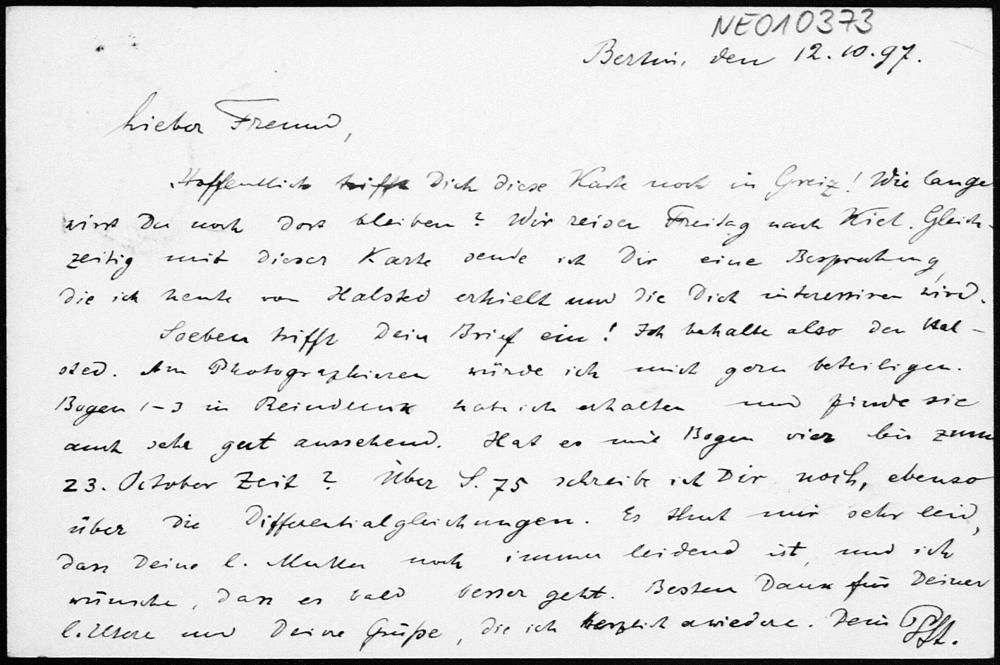 NE010373
Berlin, den 12.10.97.
Lieber Freund,
Hoffentlich trifft Dich diese Karte noch in Greiz! Wie lange
wirst Du noch dort bleiben? Wir reisen Freitag nach Kiel. Gleich-
zeitig mit dieser Karte sende ich Dir eine Besprechung,
die ich heute von Halsted erhielt und die Dich interessiren wird.
Soeben trifft Dein Brief ein! Ich behalte also den Hal-
sted. Am Photographieren würde ich mich gern beteiligen.
Bogen 1-3 in Reindruck habe ich erhalten und finde sie
auch sehr gut aussehend. Hat es mit Bogen vier bis zum
23. October Zeit? Über S. 75 schreibe ich Dir noch, ebenso
über die Differentialgleichungen. Es thut mir sehr leid,
dass Deine l. Mutter noch immer leidend ist, und ich
wünsche, dass es bald besser geht. Besten Dank für Deiner
l. Eltern und Deine Grüße, die ich herzlich erwiedere. Dein PSt.